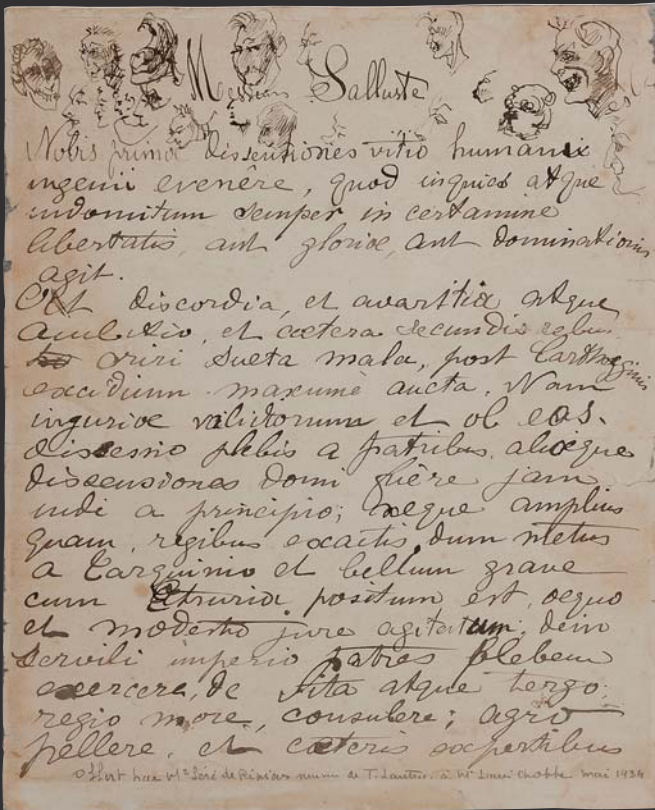 Salluste
Nobis primae dissentiones vitio humani
ingenii evenêre, quod inquies atque
indomitum semper in certamine
libertatis, aut gloriae, aut dominationis
agit.
discordia, et avaritia atque
ambitio, et cætera secundis rebus
oriri sueta mala, post Carthaginis
excidium maxumè aucta. Nam
injuriæ validiorum et ob eas
discessio plebis a patribus, aliæque
dissensiones domi fuêre jam
indi a principio; neque amplius
quam, regibus exactis, dum metus
a Tarquinio et bellum grave
cum Etruria positum est, æquo
et modesto jure agitatum; dein
servili imperio patres plebem
exercere, de vita atque tergo,
regio more, consulere; agro
pellere, et cæteris expertibus
Offert par Mr Séré de Rivières neveu de T. Lautrec à Mr Louis mai 1934